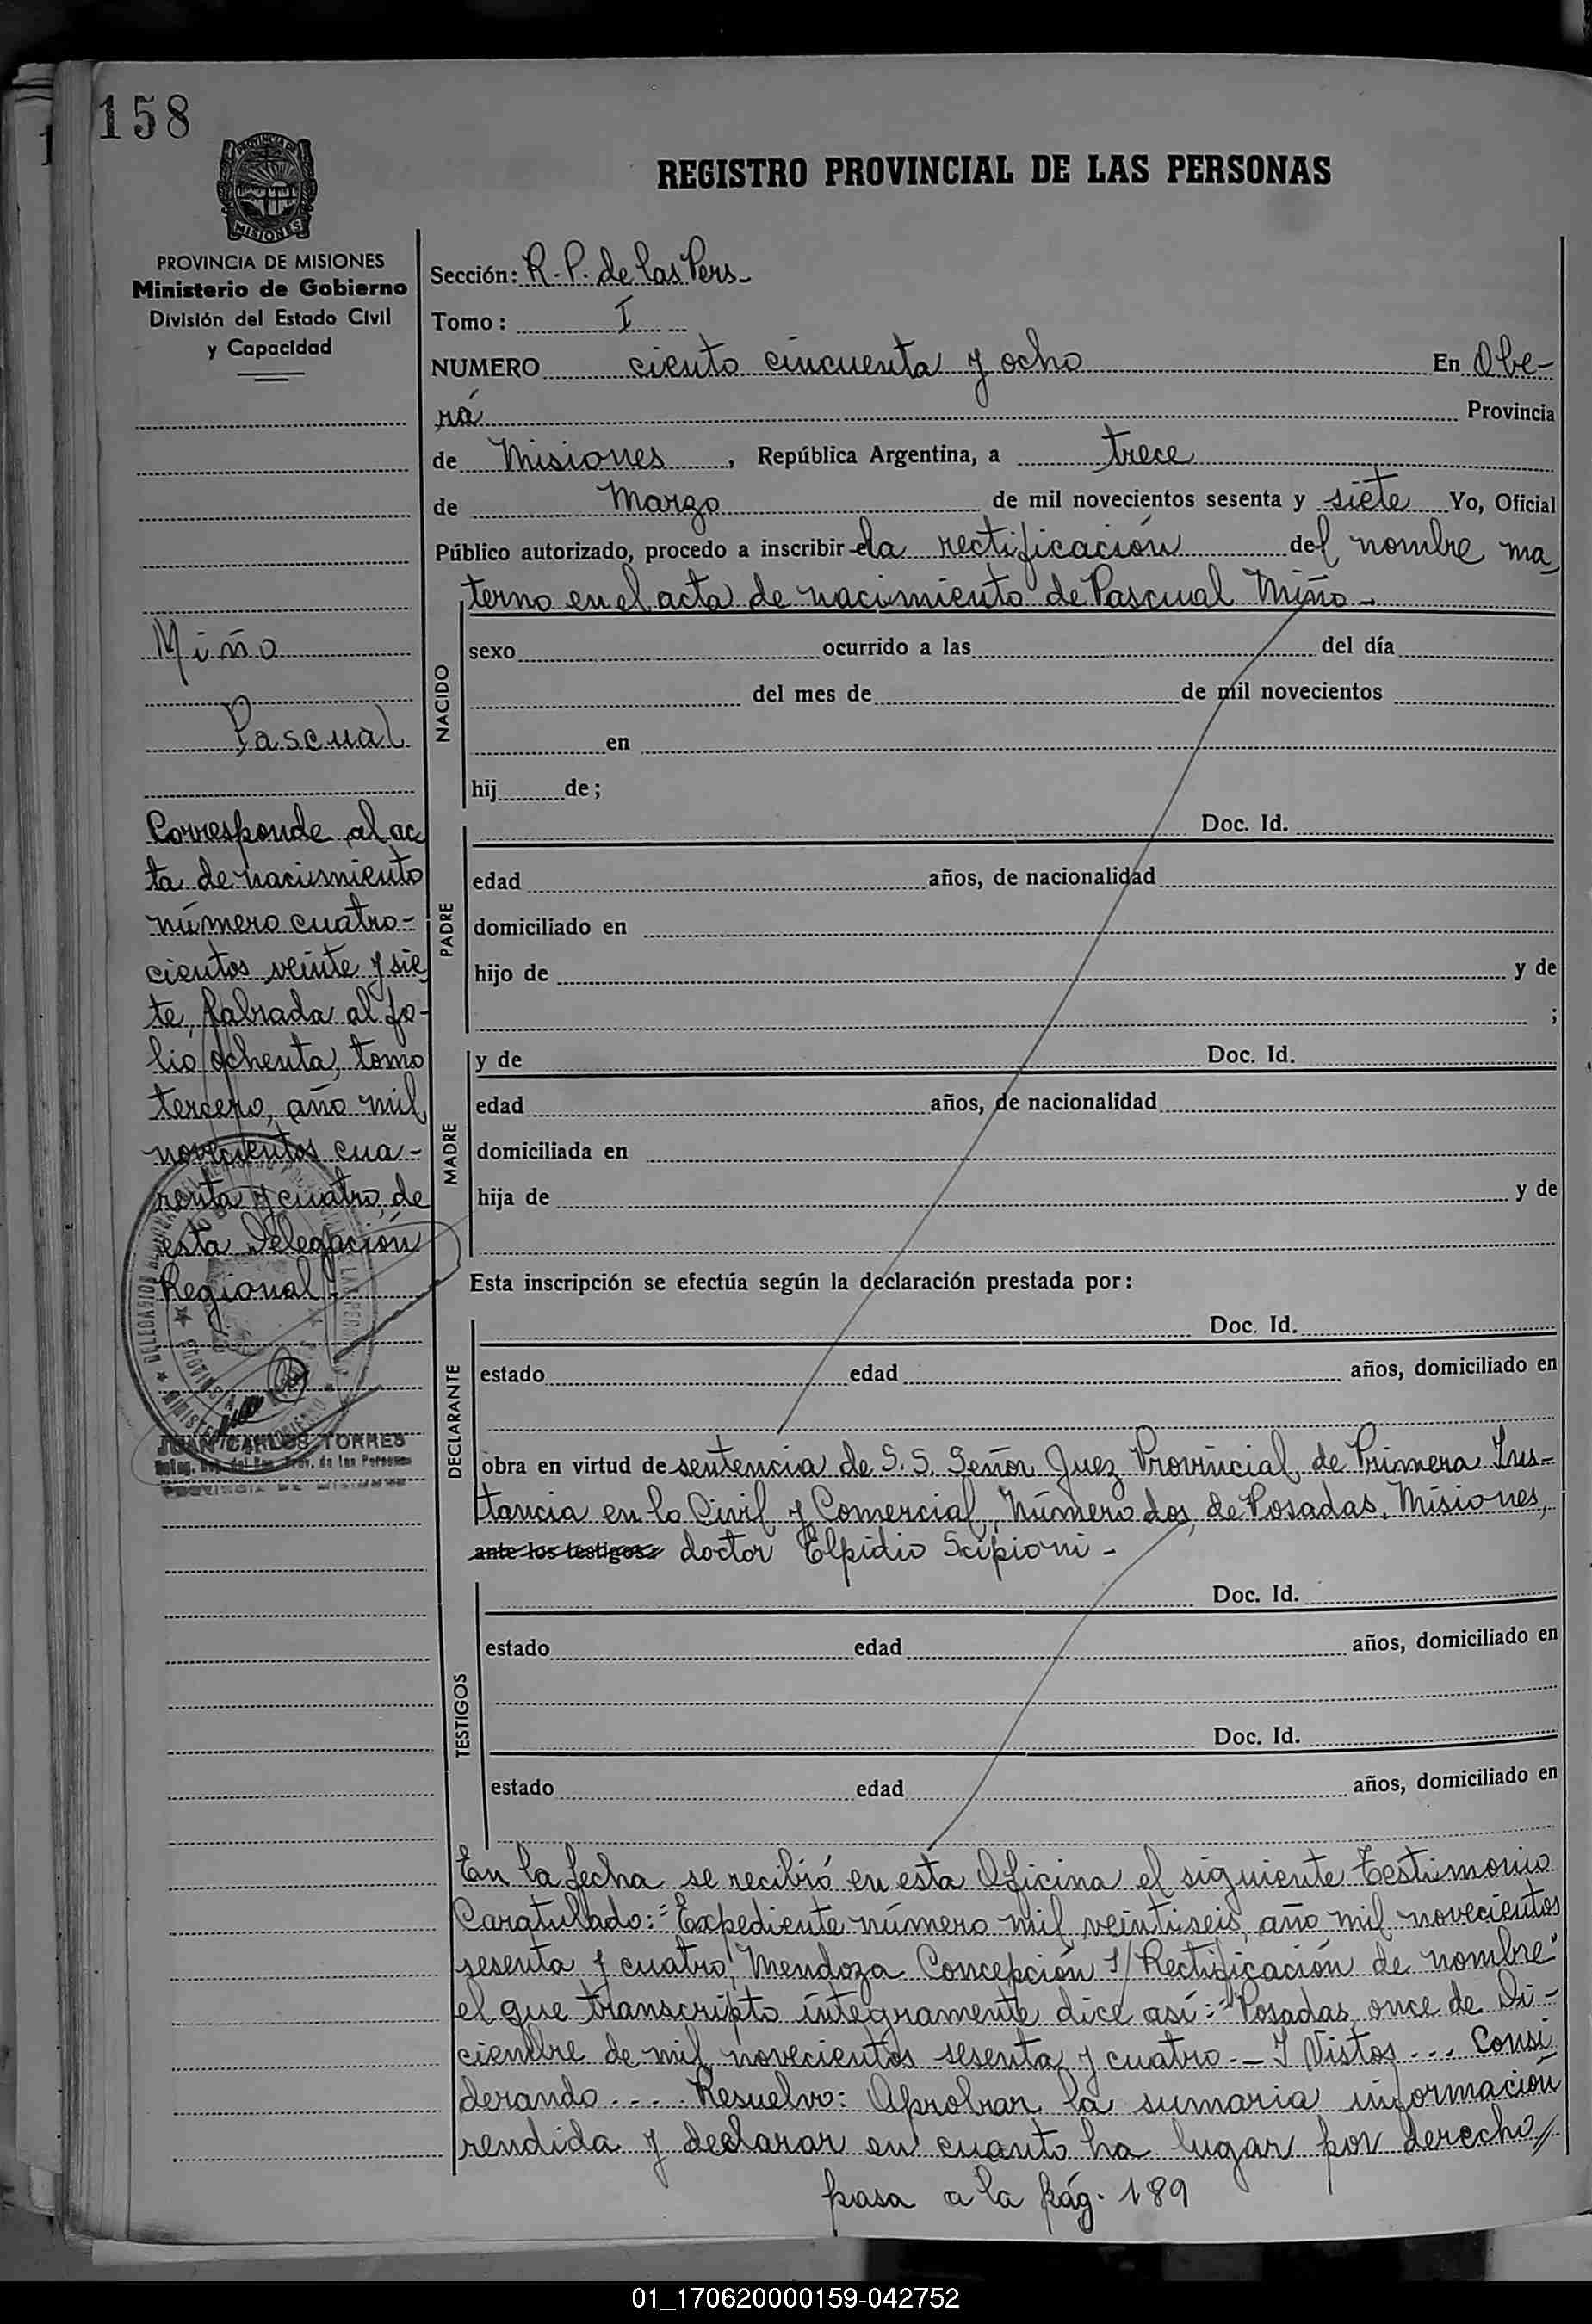 158
PROVINCIA DE
MISIONES
PROVINCIA DE MISIONES
Ministerio de Gobierno
División del Estado Civil
y Capacidad
Miño
Pascual
Corresponde al ac
ta de nacimiento
número cuatro-
cientos veinte y sie
te, labrada al fo-
lio ochenta, tomo
tercero, año mil
novecientos cua-
renta y cuatro, de
esta Delegación
Regional-
JUAN CARLOS TORRES
Deleg. Reg. del Reg. Prov. de las Personas
PROVINCIA DE MISIONES
REGISTRO PROVINCIAL DE LAS PERSONAS
Sección: R. P. de las Pers-
Tomo: I
NUMERO ciento cincuenta y ocho En Obe-
rá Provincia
de Misiones, República Argentina, a trece
de Marzo de mil novecientos sesenta y siete Yo, Oficial
Público autorizado, procedo a inscribir la rectificación del nombre ma
terno en el acta de nacimiento de Pascual Miño-
NACIDO
sexo ocurrido a las del día
del mes de de mil novecientos
en
hij de;
Doc. Id.
PADRE
edad años, de nacionalidad
domiciliado en
hijo de y de
;
y de Doc. Id.
MADRE
edad años, de nacionalidad
domiciliada en
hija de y de
Esta inscripción se efectúa según la declaración prestada por:
Doc. Id.
DECLARANTE
estado edad años, domiciliado en
obra en virtud de sentencia de S. S. Señor Juez Provincial de Primera Ins-
tancia en lo Civil y Comercial, Número dos, de Posadas. Misiones,
ante los testigos: doctor Elpidio Scipioni-
Doc. Id.
TESTIGOS
estado edad años, domiciliado en
Doc. Id.
estado edad años, domiciliado en
En la fecha se recibió en esta Oficina el siguiente Testimonio
Caratulado:="Expediente número mil veintiseis, año mil novecientos
sesenta y cuatro, Mendoza Concepción S/ Rectificación de nombre"
el que transcripto íntegramente dice así:="Posadas, once de Di-
ciembre de mil novecientos sesenta y cuatro.- Y Vistos... Consi
derando.... Resuelvo: Aprobar la sumaria información
rendida y declarar en cuanto ha lugar por derecho//
pasa a la pág. 189
01_170620000159-042752